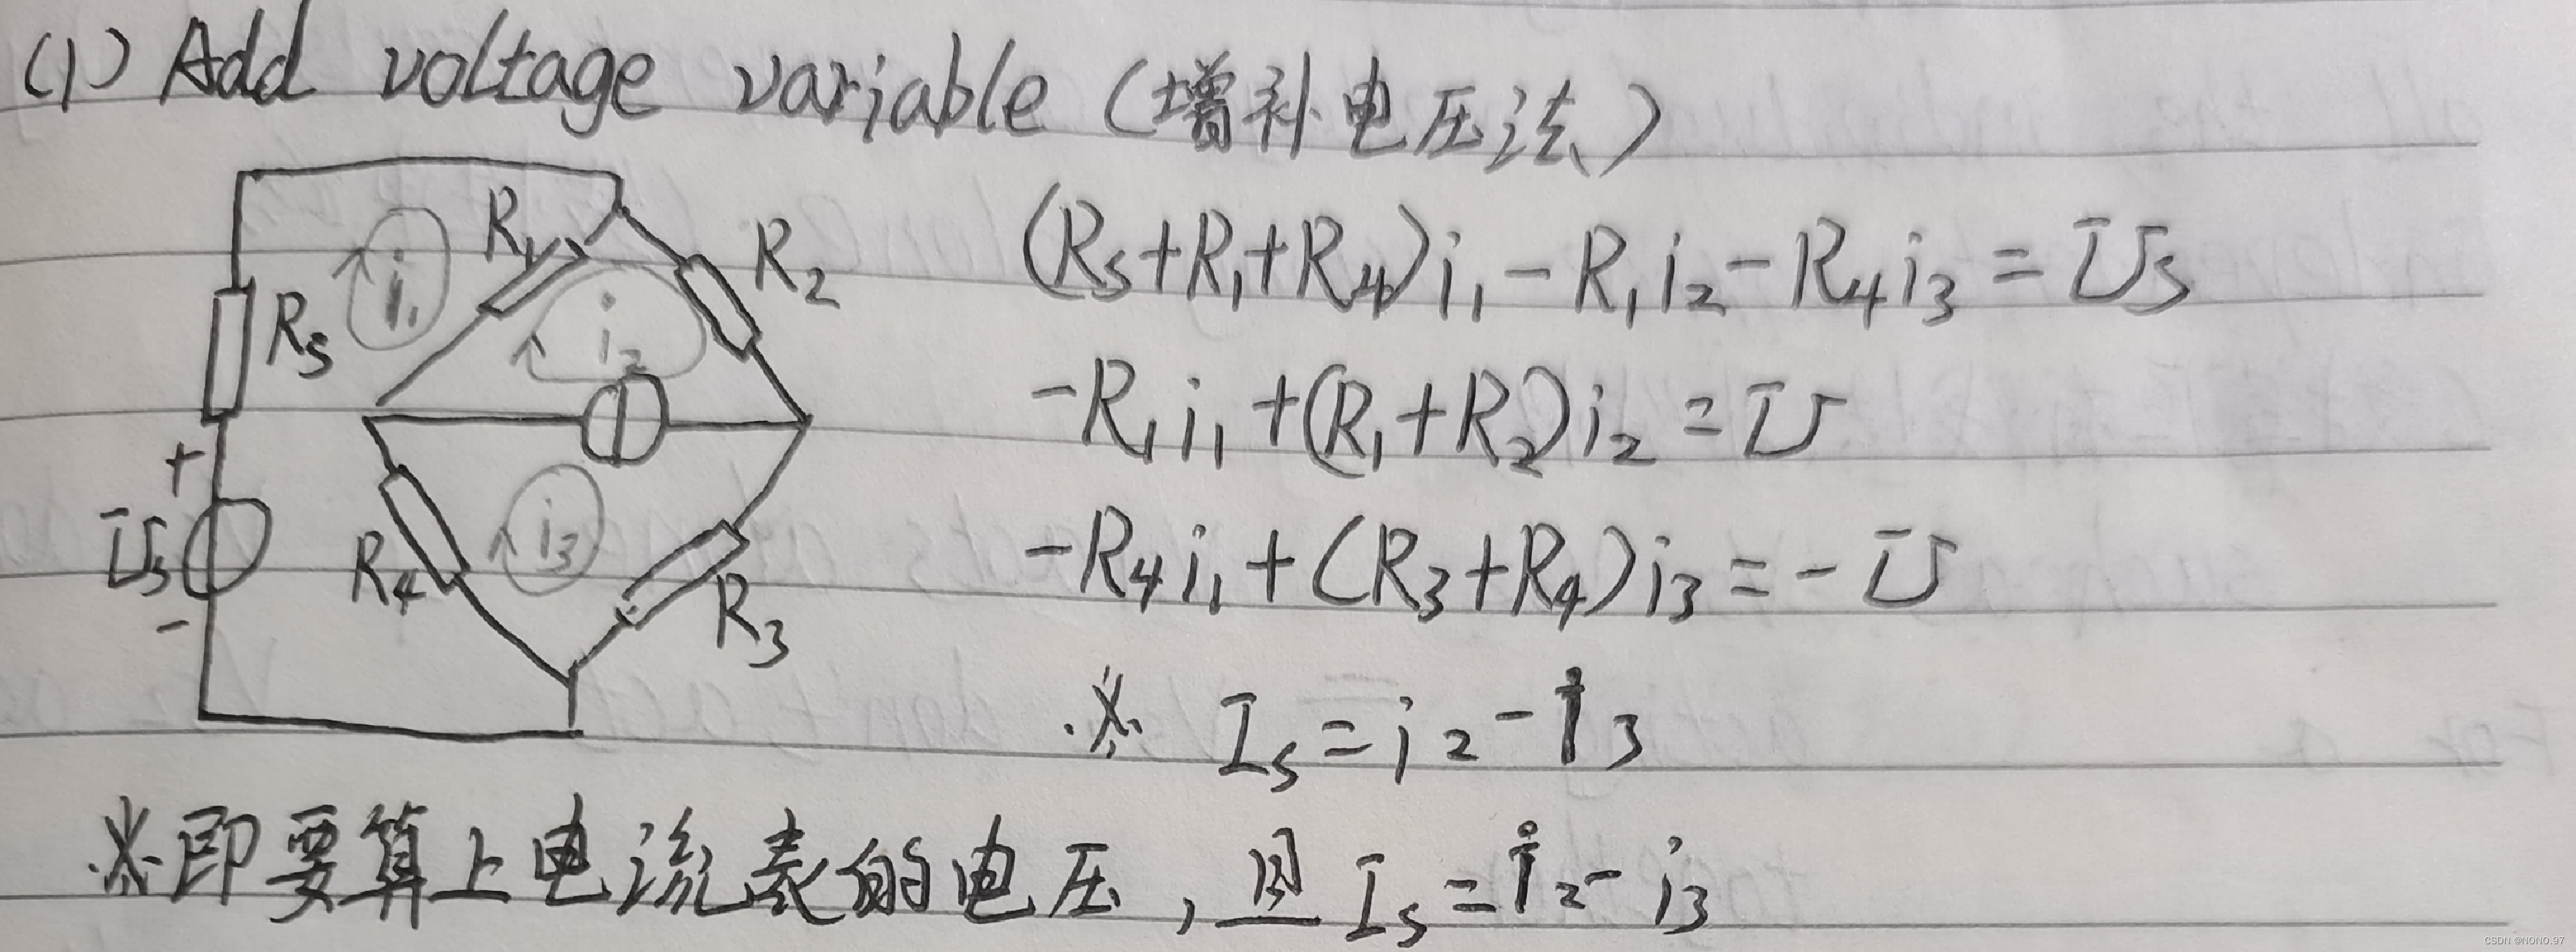 (1) Add voltage variable (增补电压法)
R1
R2
i1
i2
RS
(RS+R1+R4)i1-R1i2-R4i3=US
-R1i1+(R1+R2)i2=U
+
US
-
R4
i3
R3
-R4i1+(R3+R4)i3=-U
※ IS=i2-i3
※即要算上电流表的电压,且IS=i2-i3
CSDN @NONO.97